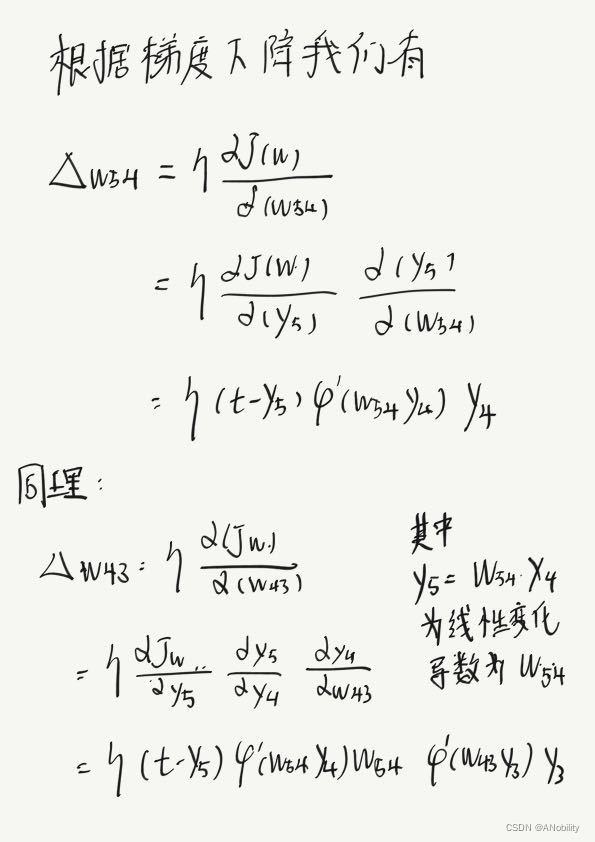 根据梯度下降我们有
△w54 = η ∂J(w) / ∂(w54)
= η ∂J(w) / ∂(y5) ∂(y5) / ∂(w54)
= η (t-y5) φ'(w54 y4) y4
同理:
△w43 = η ∂(Jw) / ∂(w43)
= η ∂Jw / ∂y5 ∂y5 / ∂y4 ∂y4 / ∂w43
= η (t-y5) φ'(w54 y4) w54 φ'(w43 y3) y3
其中
y5 = w54·y4
为线性变化
导数为 w54
CSDN @ANobility